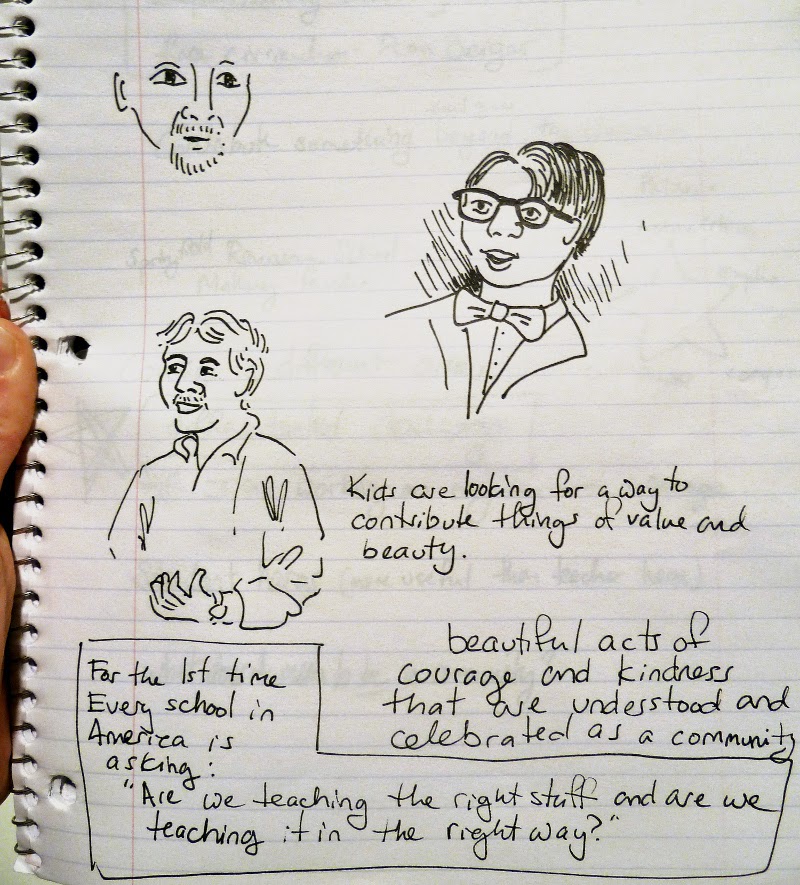 Kids are looking for a way to
contribute things of value and
beauty.
beautiful acts of
courage and kindness
that are understood and
celebrated as a community
For the 1st time
Every school in
America is
asking:
"Are we teaching the right stuff and are we
teaching it in the right way?"